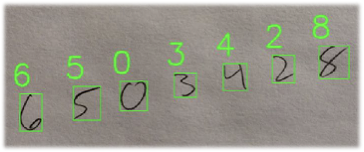 6 5 0 3 4 2 8
6 5 0 3 4 2 8